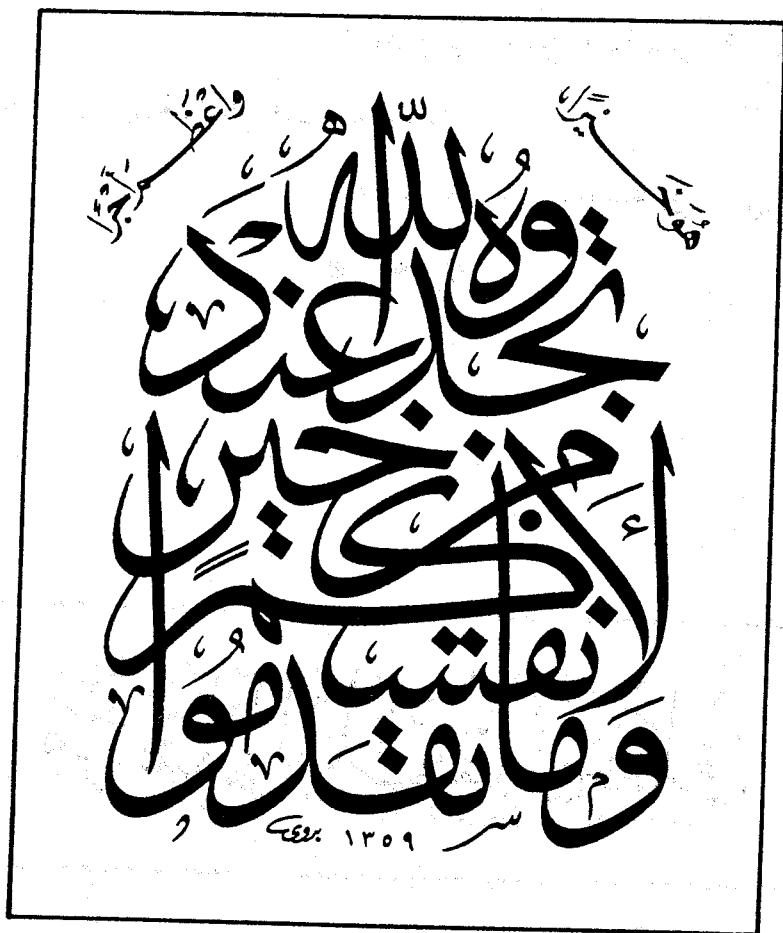 وما تقدموا
لأنفسكم
من خير
تجدوه عند الله
هو خيرا
وأعظم أجرا
بدوي ١٣٥٩